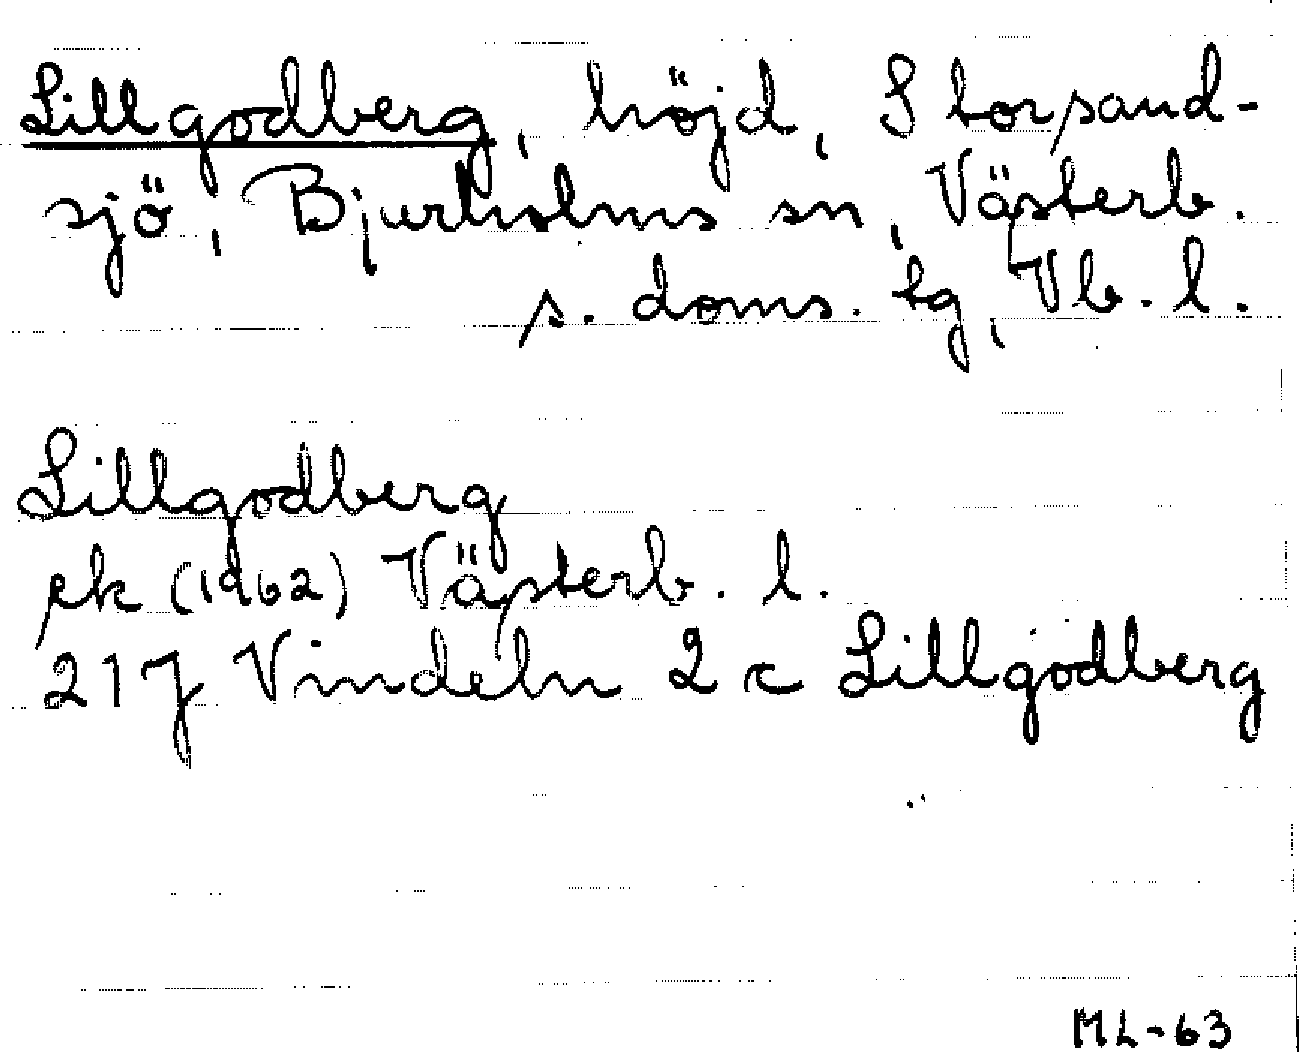 Lillgodberg, höjd, Storsand-
sjö, Bjurholms sn, Västerb.
s. doms. tg, Vb. l.
Lillgodberg
ek (1962) Västerb. l.
21 J Vindeln 2 c Lillgodberg
ML-63